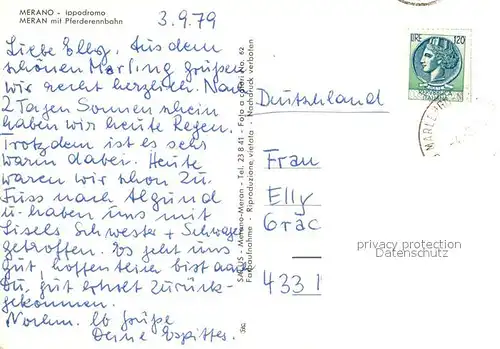 MERANO - Ippodromo
MERAN mit Pferderennbahn
3.9.79
Liebe Elly, Aus dem
schönen Marling grüßen
wir recht herzlich. Nach
2 Tagen Sonnenschein
haben wir heute Regen.
Trotzdem ist es sehr
warm dabei. Heute
waren wir schon zu
Fuss nach Algund
u. haben uns mit
Lisels Schwester + Schwager
getroffen. Es geht uns
gut, hoffentlich bist auch
Du, gut erholt zurück-
gekommen.
Nochm. lb Grüße
Deine
SACUS - Merano-Meran - Tel. 23841 - Foto a colori No. 62
Farbaufnahme - Riproduzione vietata - Nachdruck verboten
LIRE 120
REPUBBLICA
ITALIANA
MARLE
Deutschland
Frau
Elly
Grac
433 1
privacy protection
Datenschutz